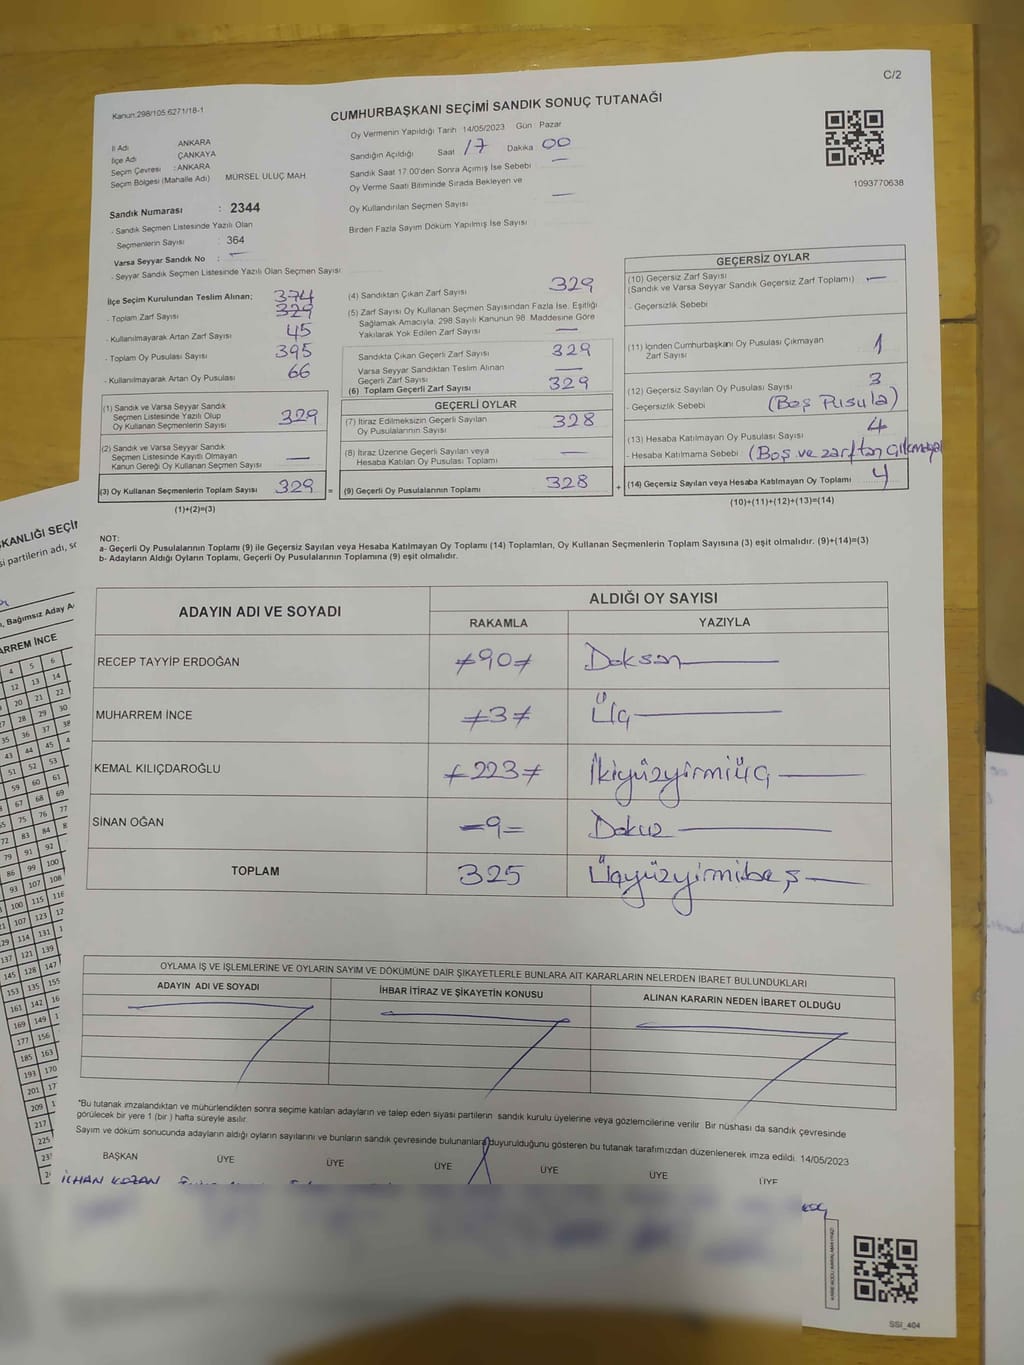 C/2
Kanun:298/105:6271/18-1
CUMHURBAŞKANI SEÇİMİ SANDIK SONUÇ TUTANAĞI
İl Adı ANKARA
İlçe Adı ÇANKAYA
Seçim Çevresi : ANKARA
Seçim Bölgesi (Mahalle Adı) MÜRSEL ULUÇ MAH.
Oy Vermenin Yapıldığı Tarih 14/05/2023 Gün : Pazar
Sandığın Açıldığı Saat 17 Dakika 00
Sandık Saat 17.00'den Sonra Açılmış İse Sebebi —
Oy Verme Saati Bitiminde Sırada Bekleyen ve
Oy Kullandırılan Seçmen Sayısı —
Birden Fazla Sayım Döküm Yapılmış İse Sayısı
1093770638
Sandık Numarası : 2344
- Sandık Seçmen Listesinde Yazılı Olan
Seçmenlerin Sayısı : 364
Varsa Seyyar Sandık No : —
- Seyyar Sandık Seçmen Listesinde Yazılı Olan Seçmen Sayısı:
İlçe Seçim Kurulundan Teslim Alınan; 374
- Toplam Zarf Sayısı 329
- Kullanılmayarak Artan Zarf Sayısı 45
- Toplam Oy Pusulası Sayısı 395
- Kullanılmayarak Artan Oy Pusulası 66
(1) Sandık ve Varsa Seyyar Sandık
Seçmen Listesinde Yazılı Olup
Oy Kullanan Seçmenlerin Sayısı 329
(2) Sandık ve Varsa Seyyar Sandık
Seçmen Listesinde Kayıtlı Olmayan
Kanun Gereği Oy Kullanan Seçmen Sayısı —
(3) Oy Kullanan Seçmenlerin Toplam Sayısı 329 =
(1)+(2)=(3)
(4) Sandıktan Çıkan Zarf Sayısı 329
(5) Zarf Sayısı Oy Kullanan Seçmen Sayısından Fazla İse, Eşitliği
Sağlamak Amacıyla, 298 Sayılı Kanunun 98. Maddesine Göre
Yakılarak Yok Edilen Zarf Sayısı —
Sandıkta Çıkan Geçerli Zarf Sayısı 329
Varsa Seyyar Sandıktan Teslim Alınan
Geçerli Zarf Sayısı —
(6) Toplam Geçerli Zarf Sayısı 329
GEÇERLİ OYLAR
(7) İtiraz Edilmeksizin Geçerli Sayılan
Oy Pusulalarının Sayısı 328
(8) İtiraz Üzerine Geçerli Sayılan veya
Hesaba Katılan Oy Pusulası Toplamı —
(9) Geçerli Oy Pusulalarının Toplamı 328 +
GEÇERSİZ OYLAR
(10) Geçersiz Zarf Sayısı
(Sandık ve Varsa Seyyar Sandık Geçersiz Zarf Toplamı) —
- Geçersizlik Sebebi
(11) İçinden Cumhurbaşkanı Oy Pusulası Çıkmayan
Zarf Sayısı 1
(12) Geçersiz Sayılan Oy Pusulası Sayısı 3
- Geçersizlik Sebebi (Boş Pusula)
(13) Hesaba Katılmayan Oy Pusulası Sayısı 4
- Hesaba Katılmama Sebebi (Boş ve zarftan
(14) Geçersiz Sayılan veya Hesaba Katılmayan Oy Toplamı 4
(10)+(11)+(12)+(13)=(14)
NOT:
a- Geçerli Oy Pusulalarının Toplamı (9) ile Geçersiz Sayılan veya Hesaba Katılmayan Oy Toplamı (14) Toplamları, Oy Kullanan Seçmenlerin Toplam Sayısına (3) eşit olmalıdır. (9)+(14)=(3)
b- Adayların Aldığı Oyların Toplamı, Geçerli Oy Pusulalarının Toplamına (9) eşit olmalıdır.
ADAYIN ADI VE SOYADI ALDIĞI OY SAYISI
RAKAMLA YAZIYLA
RECEP TAYYİP ERDOĞAN ≠90≠ Doksan
MUHARREM İNCE ≠3≠ Üç
KEMAL KILIÇDAROĞLU ≠223≠ İkiyüzyirmiüç
SİNAN OĞAN =9= Dokuz
TOPLAM 325 Üçyüzyirmibeş
OYLAMA İŞ VE İŞLEMLERİNE VE OYLARIN SAYIM VE DÖKÜMÜNE DAİR ŞİKAYETLERLE BUNLARA AİT KARARLARIN NELERDEN İBARET BULUNDUKLARI
ADAYIN ADI VE SOYADI İHBAR İTİRAZ VE ŞİKAYETİN KONUSU ALINAN KARARIN NEDEN İBARET OLDUĞU
*Bu tutanak imzalandıktan ve mühürlendikten sonra seçime katılan adayların ve talep eden siyasi partilerin sandık kurulu üyelerine veya gözlemcilerine verilir. Bir nüshası da sandık çevresinde
görülecek bir yere 1 (bir) hafta süreyle asılır.
Sayım ve döküm sonucunda adayların aldığı oyların sayılarını ve bunların sandık çevresinde bulunanlara duyurulduğunu gösteren bu tutanak tarafımızdan düzenlenerek imza edildi. 14/05/2023
BAŞKAN ÜYE ÜYE ÜYE ÜYE ÜYE ÜYE
İLHAN KOZAN
SSİ_404